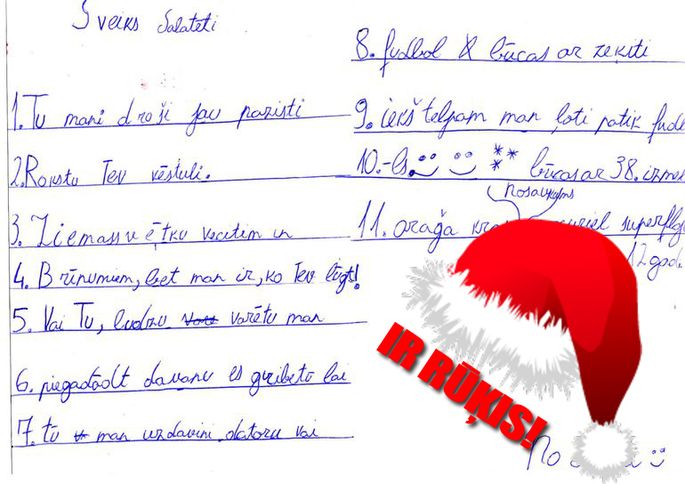 Sveiks Salatēti
1. Tu mani droši jau pazīsti
2. Rakstu Tev vēstuli.
3. Ziemassvētku vecītim un
4. Brīnumiem, bet man ir, ko Tev lūgt!
5. Vai Tu, ludzu varētu man
6. piegādāt davanu es gribētu lai
7. tu man uzdavini datoru vai
8. fudbol būcas ar zeķīti
9. iekš telpam man ļoti patik fudb
10. būcas ar 38. izmer
Nosaukums
11. oraģa superfly
12 god
IR RŪĶIS!
No